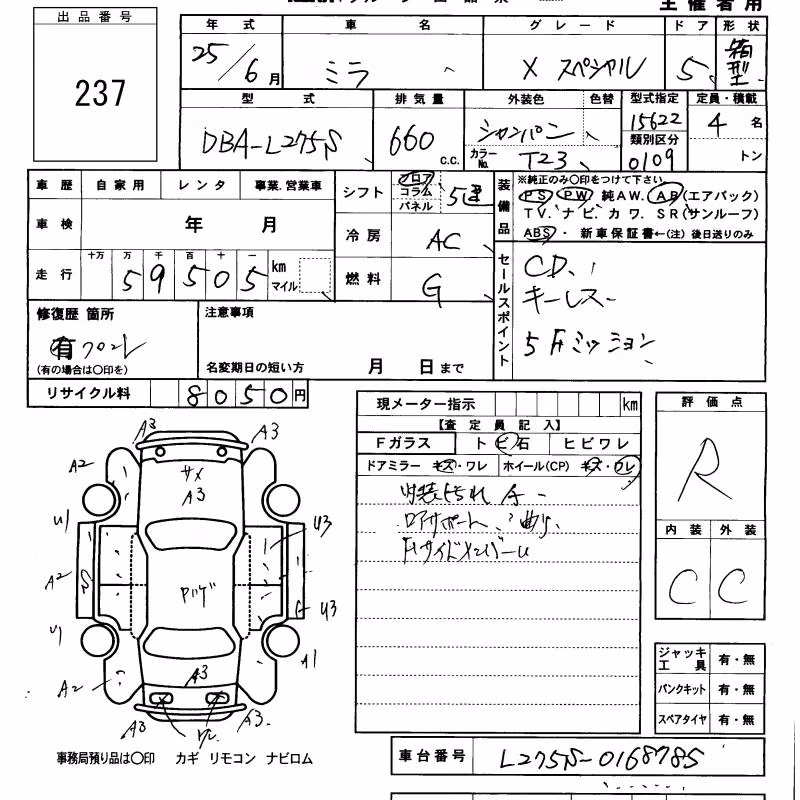 主催者用
出品番号
237
年式 車名 グレード ドア 形状
25/6月 ミラ X スペシャル 5 箱型
型式 排気量 外装色 色替 型式指定 定員・積載
DBA-L275S 660 c.c. シャンパン 15622 4名
類別区分
カラーNo. T23 0109 トン
車歴 自家用 レンタ 事業.営業車 シフト フロア コラム パネル 5速
装備品 ※純正のみ〇印をつけて下さい
PS PW 純AW. AB(エアバック)
TV. ナビ. カワ. SR(サンルーフ)
ABS・ 新車保証書←(注) 後日送りのみ
車検 年 月 冷房 AC
走行 十万 万 千 百 十 一
59505 km マイル 燃料 G
セールスポイント CD.
キーレス
5Fミッション
修復歴 箇所 有 フロント
(有の場合は〇印を)
注意事項
名変期日の短い方 月 日まで
リサイクル料 8050円
現メーター指示 km
【査定員記入】
Fガラス トビ石 ヒビワレ
ドアミラー キズ・ワレ ホイール(CP) キズ・ワレ
内装よごれ
ロアサポート 曲り
FサイドメンバーU
評価点
R
内装 外装
C C
A3 A3
A2 サメ A2
A3
U1 U3
A2
U3
U1 A1
A2 A3
A3 A3
事務局預り品は〇印 カギ リモコン ナビロム
ジャッキ工具 有・無
パンクキット 有・無
スペアタイヤ 有・無
車台番号 L275S-0168785